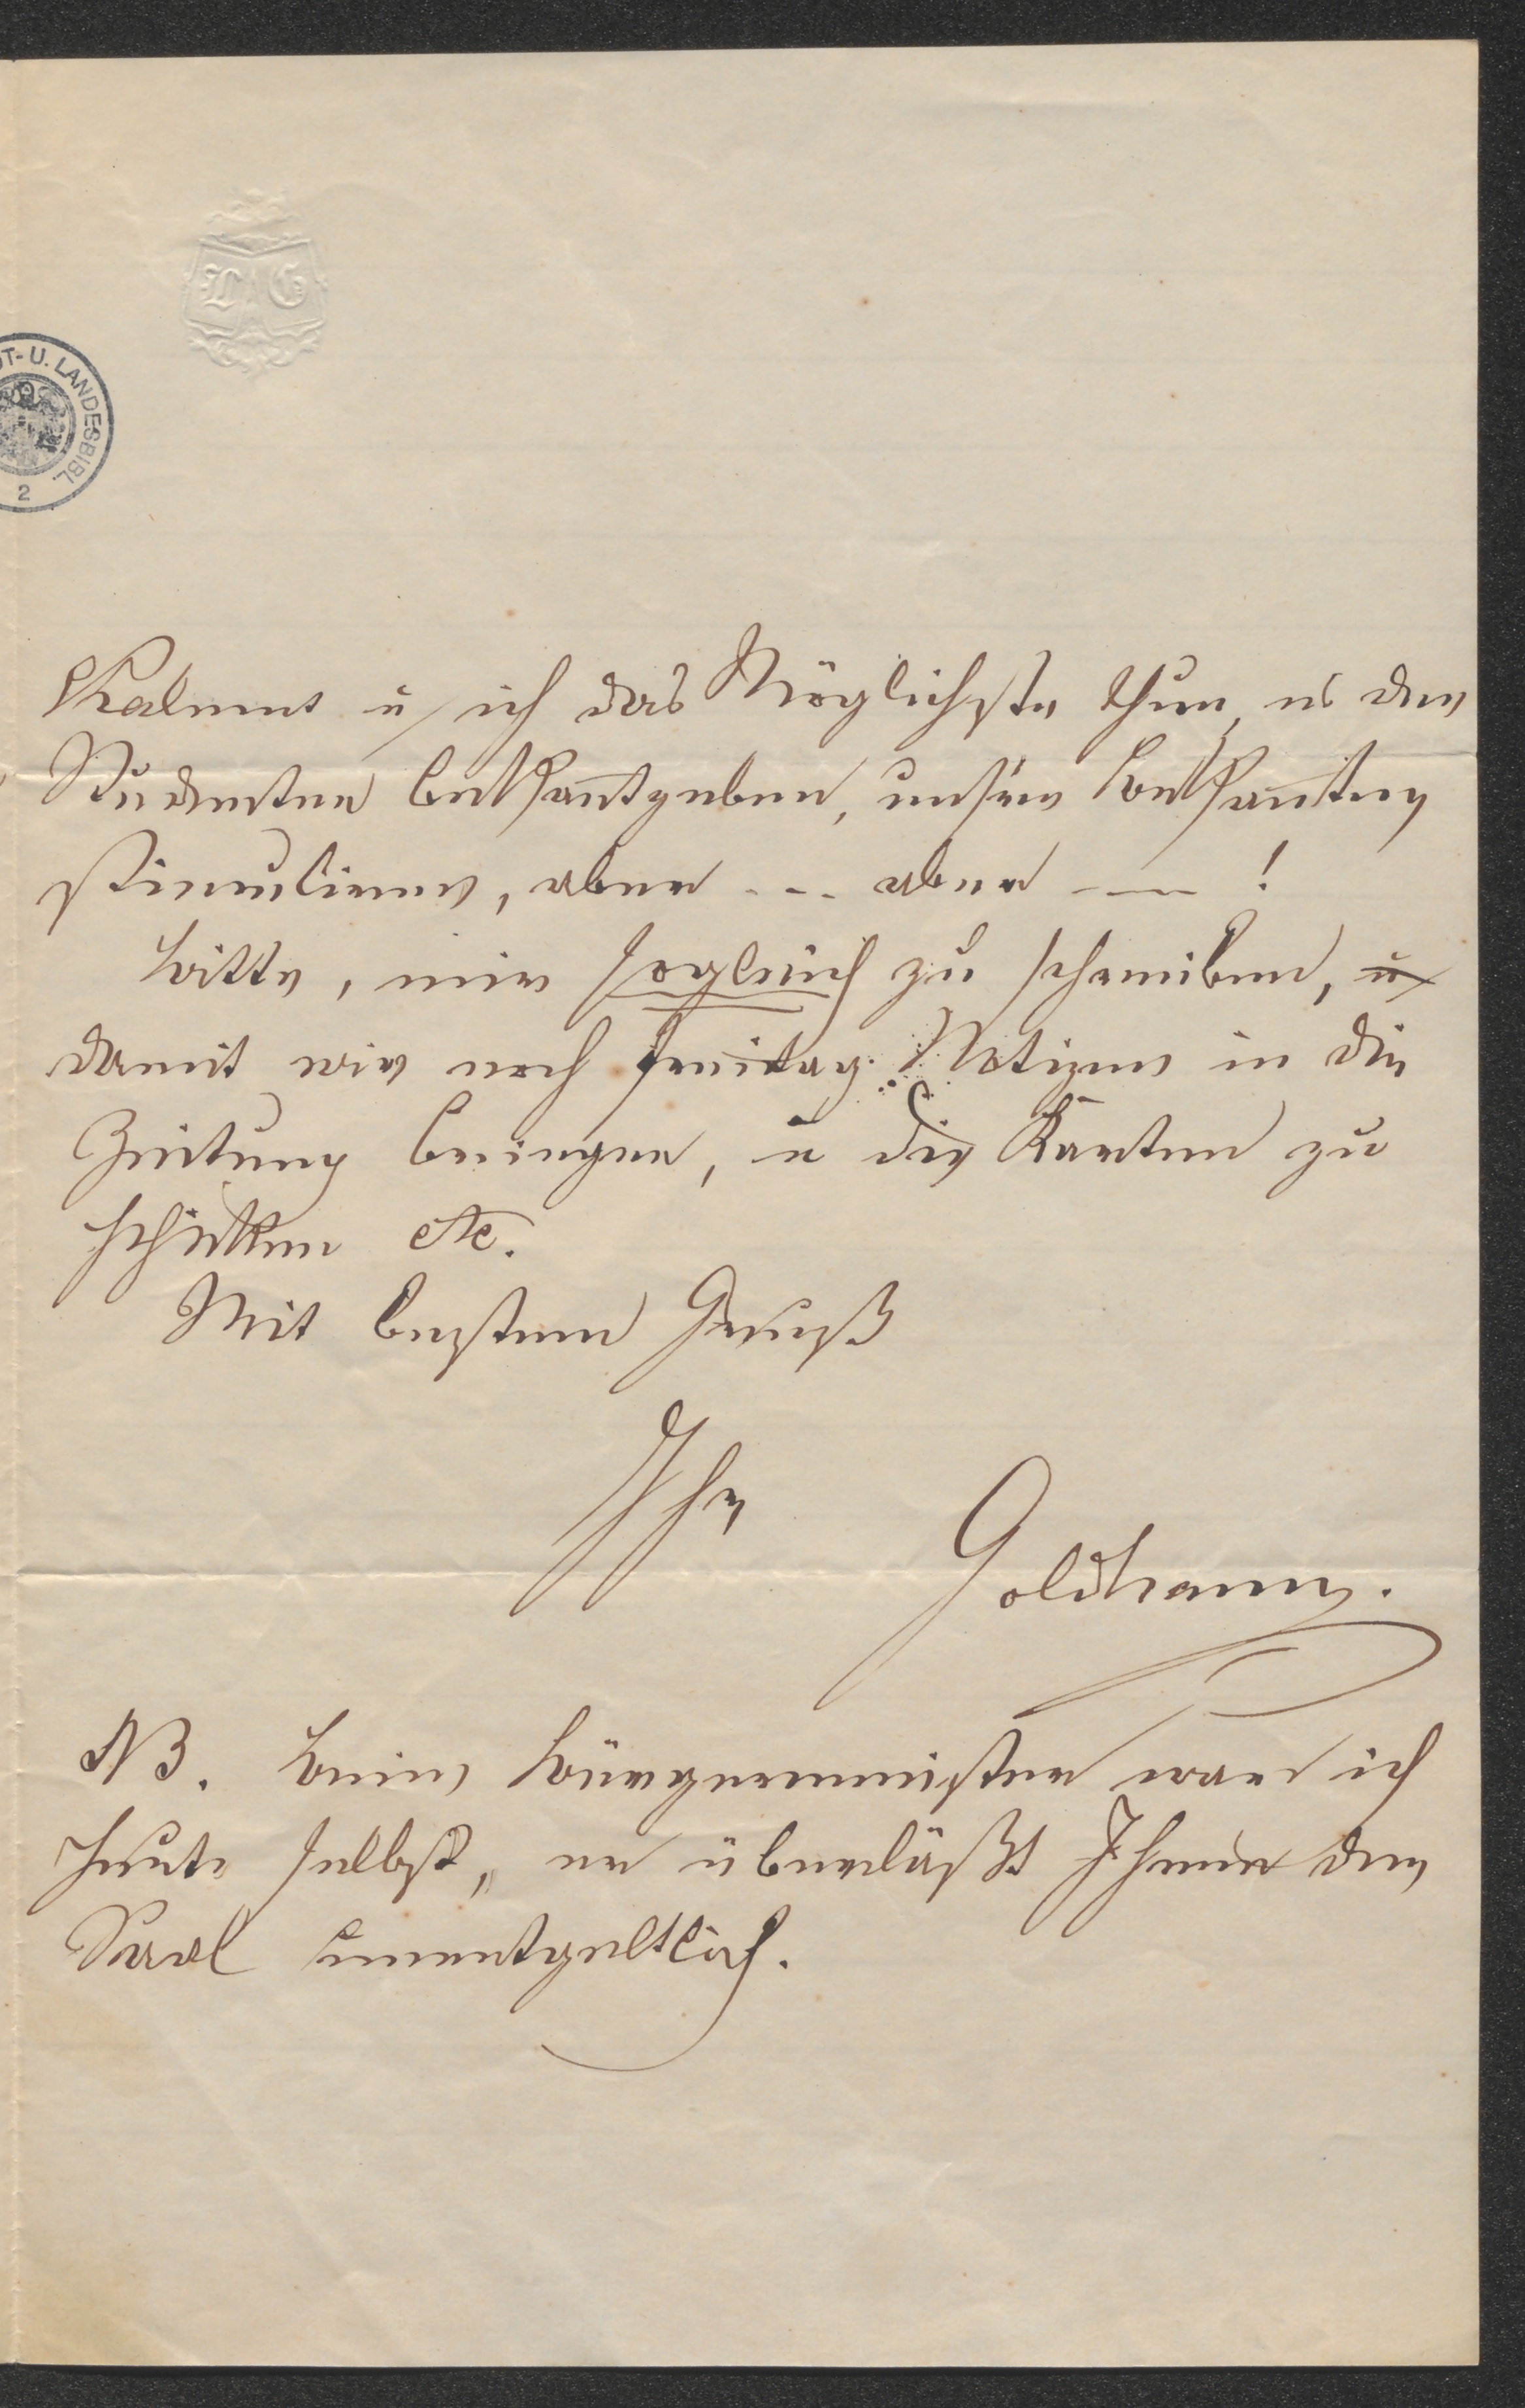 L G
DT- U. LANDESBIBL.
2
Kalmus u ich das Möglichste thun, es den
Studenten bekanntgeben, unsere Bekannten
stimulieren, aber - - - aber — !
Bitte, mir sogleich zu schreiben, u
damit wir noch Freitag Notizen in die
Zeitung bringen, u die Karten zu
schicken etc.
Mit bestem Gruß
Ihr
Goldhann.
NB. Beim Bürgermeister war ich
heute selbst, er überläßt Ihnen den
Saal unentgeltlich.